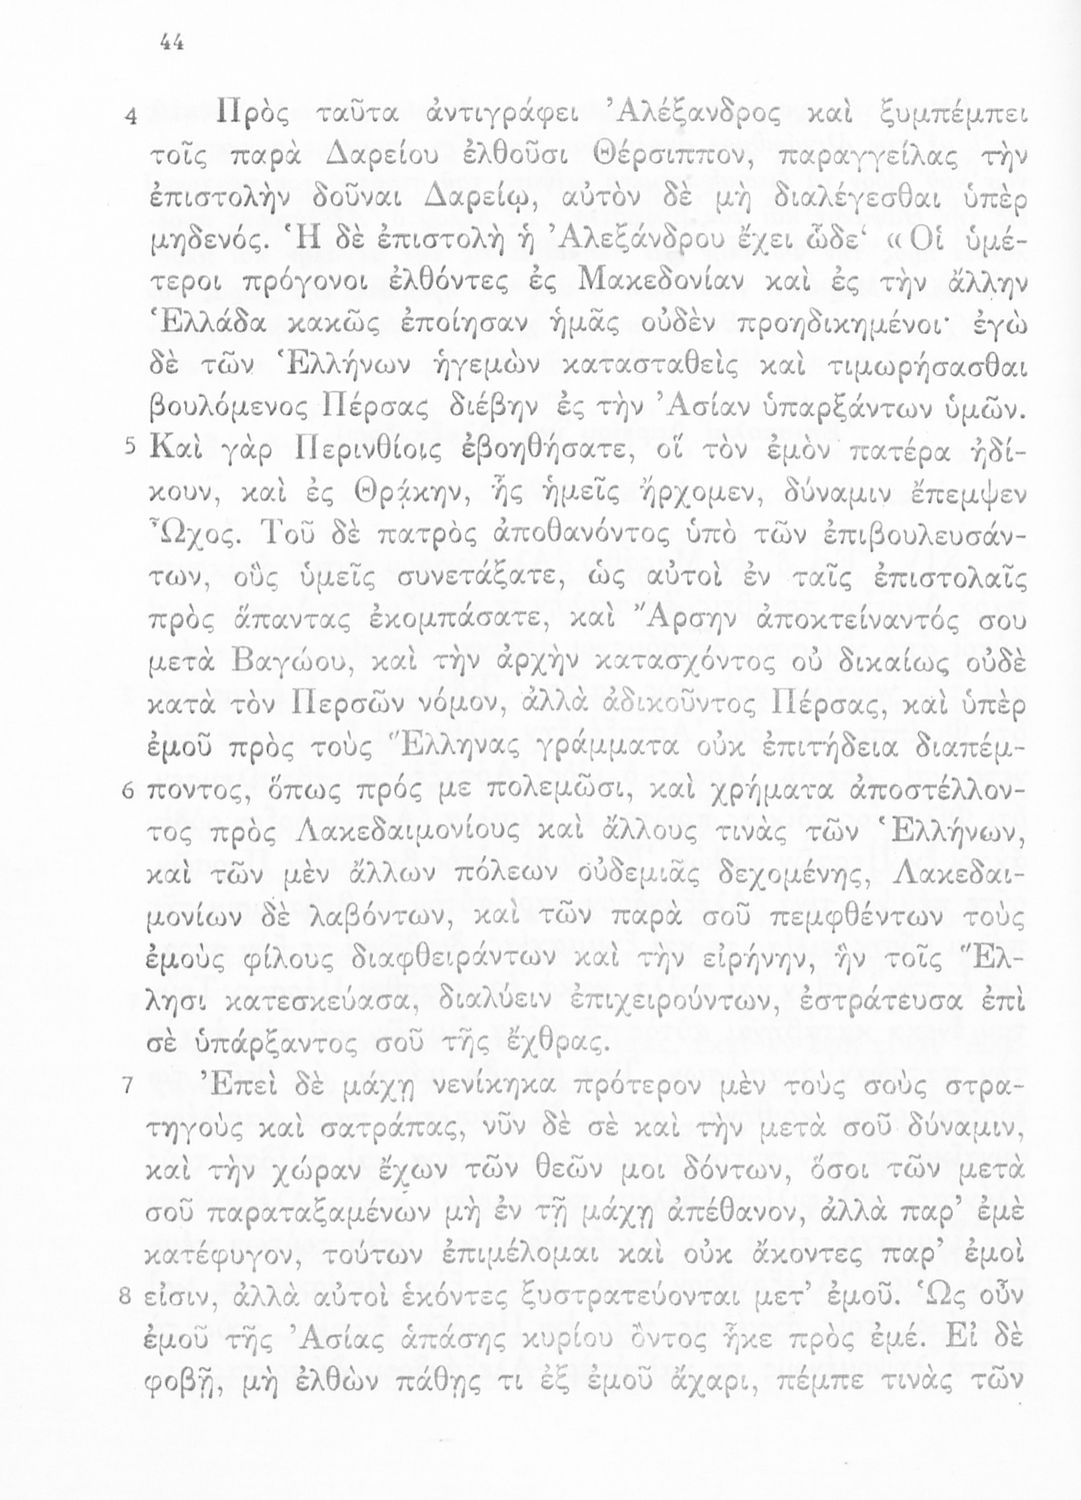 44
4 Πρὸς ταῦτα ἀντιγράφει Ἀλέξανδρος καὶ ξυμπέμπει
τοῖς παρὰ Δαρείου ἐλθοῦσι Θέρσιππον, παραγγείλας τὴν
ἐπιστολὴν δοῦναι Δαρείῳ, αὐτὸν δὲ μὴ διαλέγεσθαι ὑπὲρ
μηδενός. Ἡ δὲ ἐπιστολὴ ἡ Ἀλεξάνδρου ἔχει ὧδε· «Οἱ ὑμέ-
τεροι πρόγονοι ἐλθόντες ἐς Μακεδονίαν καὶ ἐς τὴν ἄλλην
Ἑλλάδα κακῶς ἐποίησαν ἡμᾶς οὐδὲν προηδικημένοι· ἐγὼ
δὲ τῶν Ἑλλήνων ἡγεμὼν κατασταθεὶς καὶ τιμωρήσασθαι
βουλόμενος Πέρσας διέβην ἐς τὴν Ἀσίαν ὑπαρξάντων ὑμῶν.
5 Καὶ γὰρ Περινθίοις ἐβοηθήσατε, οἳ τὸν ἐμὸν πατέρα ἠδί-
κουν, καὶ ἐς Θρᾴκην, ἧς ἡμεῖς ἤρχομεν, δύναμιν ἔπεμψεν
Ὦχος. Τοῦ δὲ πατρὸς ἀποθανόντος ὑπὸ τῶν ἐπιβουλευσάν-
των, οὓς ὑμεῖς συνετάξατε, ὡς αὐτοὶ ἐν ταῖς ἐπιστολαῖς
πρὸς ἅπαντας ἐκομπάσατε, καὶ Ἄρσην ἀποκτείναντός σου
μετὰ Βαγώου, καὶ τὴν ἀρχὴν κατασχόντος οὐ δικαίως οὐδὲ
κατὰ τὸν Περσῶν νόμον, ἀλλὰ ἀδικοῦντος Πέρσας, καὶ ὑπὲρ
ἐμοῦ πρὸς τοὺς Ἕλληνας γράμματα οὐκ ἐπιτήδεια διαπέμ-
6 ποντος, ὅπως πρός με πολεμῶσι, καὶ χρήματα ἀποστέλλον-
τος πρὸς Λακεδαιμονίους καὶ ἄλλους τινὰς τῶν Ἑλλήνων,
καὶ τῶν μὲν ἄλλων πόλεων οὐδεμιᾶς δεχομένης, Λακεδαι-
μονίων δὲ λαβόντων, καὶ τῶν παρὰ σοῦ πεμφθέντων τοὺς
ἐμοὺς φίλους διαφθειράντων καὶ τὴν εἰρήνην, ἣν τοῖς Ἕλ-
λησι κατεσκεύασα, διαλύειν ἐπιχειρούντων, ἐστράτευσα ἐπὶ
σὲ ὑπάρξαντος σοῦ τῆς ἔχθρας.
7 Ἐπεὶ δὲ μάχῃ νενίκηκα πρότερον μὲν τοὺς σοὺς στρα-
τηγοὺς καὶ σατράπας, νῦν δὲ σὲ καὶ τὴν μετὰ σοῦ δύναμιν,
καὶ τὴν χώραν ἔχων τῶν θεῶν μοι δόντων, ὅσοι τῶν μετὰ
σοῦ παραταξαμένων μὴ ἐν τῇ μάχῃ ἀπέθανον, ἀλλὰ παρ’ ἐμὲ
κατέφυγον, τούτων ἐπιμέλομαι καὶ οὐκ ἄκοντες παρ’ ἐμοὶ
8 εἰσιν, ἀλλὰ αὐτοὶ ἑκόντες ξυστρατεύονται μετ’ ἐμοῦ. Ὡς οὖν
ἐμοῦ τῆς Ἀσίας ἁπάσης κυρίου ὄντος ἧκε πρὸς ἐμέ. Εἰ δὲ
φοβῇ, μὴ ἐλθὼν πάθῃς τι ἐξ ἐμοῦ ἄχαρι, πέμπε τινὰς τῶν